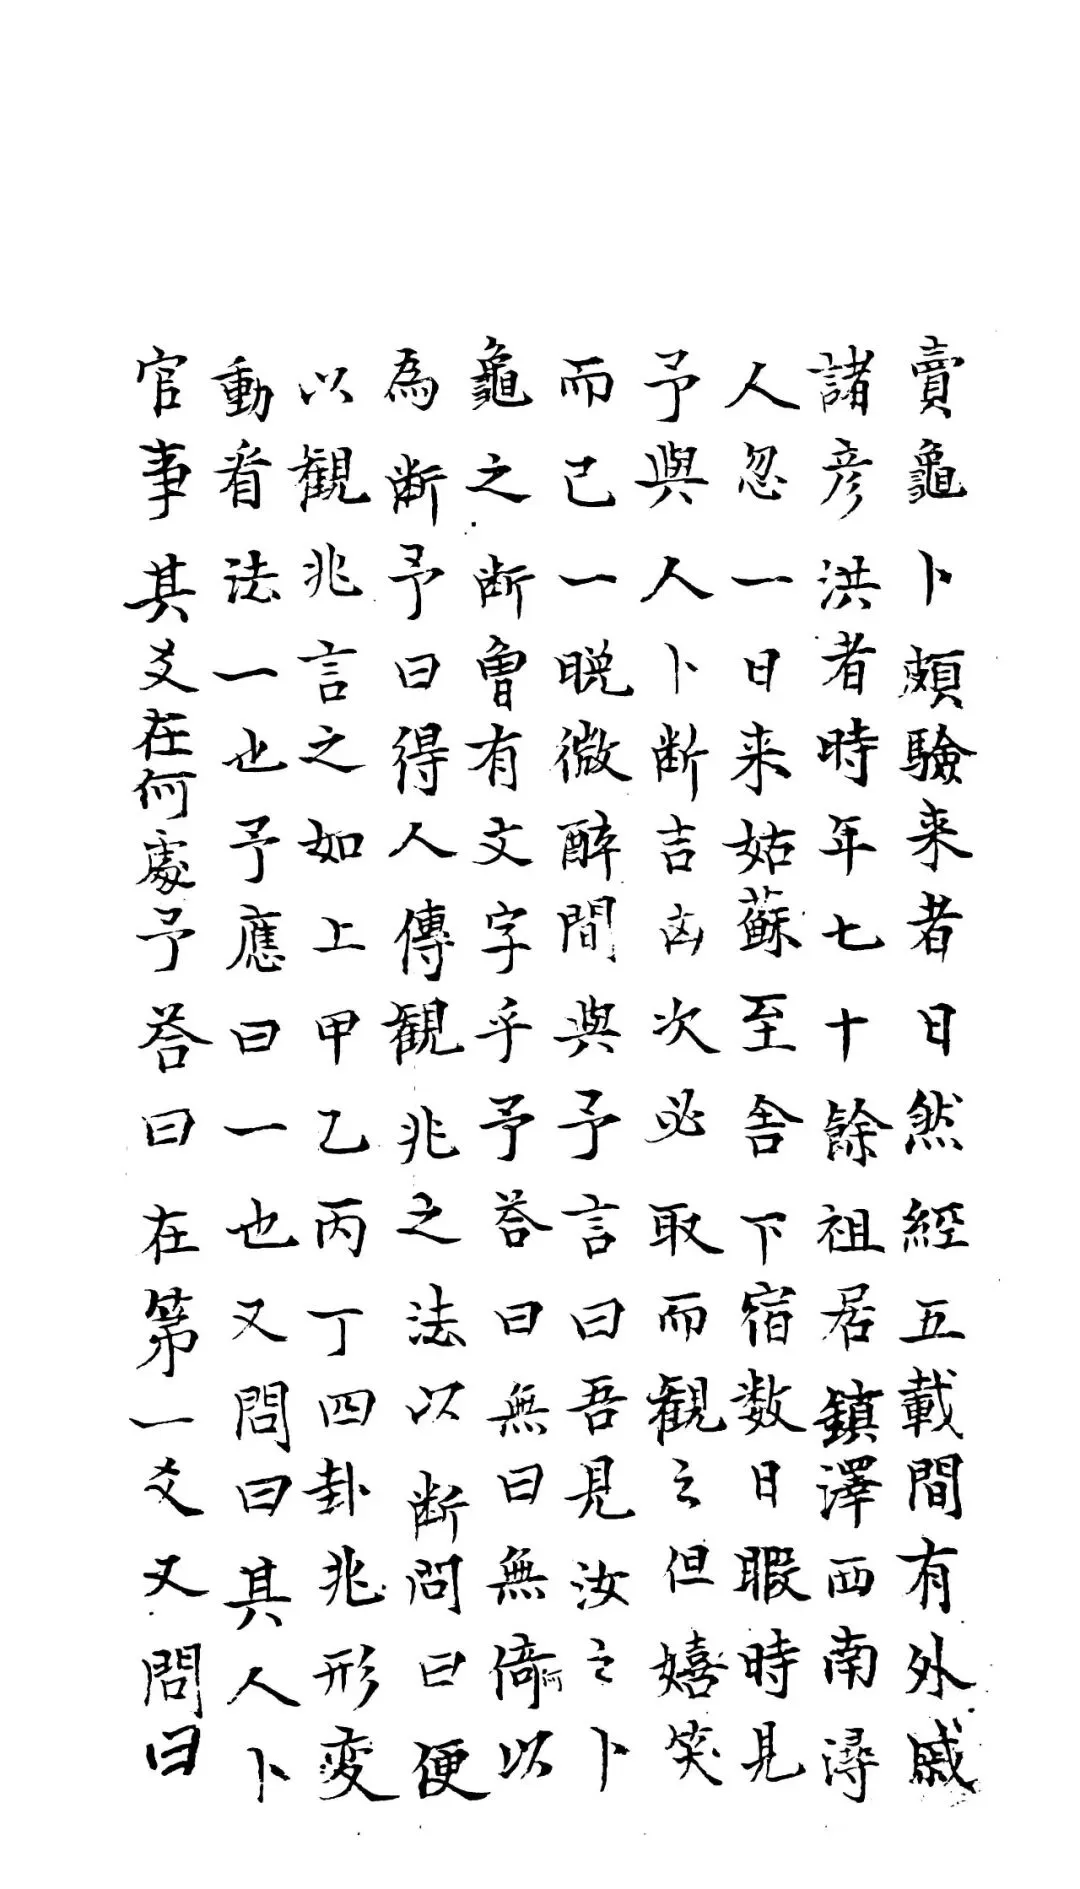 賣龜卜頗驗来者日然經五載間有外戚
諸彦洪者時年七十餘祖居鎮澤西南潯
人忽一日来姑蘇至舍下宿数日暇時見
予與人卜断吉凶次必取而観之但嬉笑
而已一晚微醉間與予言曰吾見汝之卜
龜之断曾有文字乎予荅曰無曰無倚何以
為断予曰得人傳観兆之法以断問曰便
以観兆言之如上甲乙丙丁四卦兆形変
動看法一也予應曰一也又問曰其人卜
官事其爻在何處予荅曰在第一爻又問曰